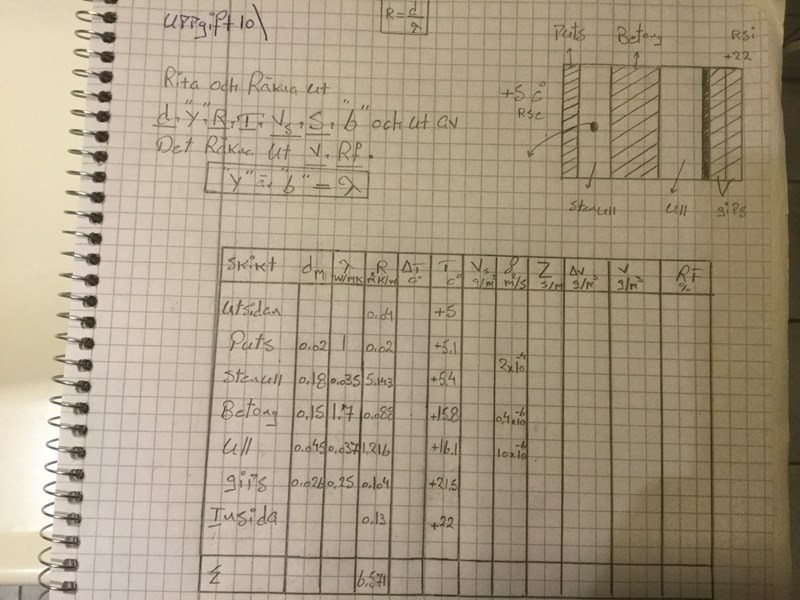 uppgift 10
R = d/λ
Rita och Räkna ut
d, "γ", R, T, Vs, S, "b" och ut av
Det Räkna ut V, Rf.
"γ" ä "b" = λ
Puts Betong Rsi
+22
+5 c°
Rse
stenull ull gips
Skikt dm λ w/mk R m²k/w ΔT c° T c° Vs g/m³ δ m²/s Z s/m Δv g/m³ V g/m³ RF %
Utsidan 0.04 +5
Puts 0.02 1 0.02 +5.1
2x10⁻⁴
Stenull 0.18 0.035 5.143 +5.4
Betong 0.15 1.7 0.088 +15.8 0.4x10⁻⁶
Ull 0.045 0.037 1.216 +16.1 10x10⁻⁶
gips 0.026 0.25 0.104 +21.5
Insida 0.13 +22
Σ 6.571